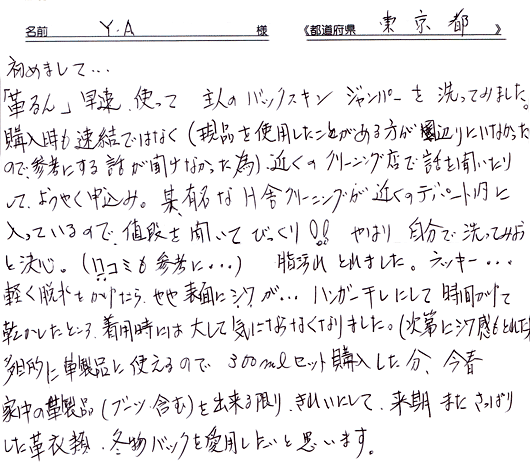 名前 Y.A 様 《都道府県 東京都 》
初めまして…
「革るん」早速、使って 主人のバックスキン ジャンパーを洗ってみました。
購入時も速結ではなく(現品を使用したことがある方が周辺りにいなかった
ので参考にする話が聞けなかった為)近くのクリーニング店で話を聞いたり
して、ようやく申込み。某、有名なH舎クリーニングが近くのデパート内に
入っているので、値段を聞いてびっくり!! やはり自分で洗ってみよう
と決心。(口コミも参考に…) 脂汚れとれました。ラッキー…
軽く脱水をかけたら、やや表面にシワが…ハンガー干しにして時間かけて
乾かしたところ、着用時には大して気にならなくなりました。(次第にシワ感もとれた)
多目的に革製品に使えるので 300mlセット購入した分、今春
家中の革製品(ブーツ含む)を出来る限り、きれいにして、来期またさっぱり
した革衣類、冬物バックを愛用したいと思います。